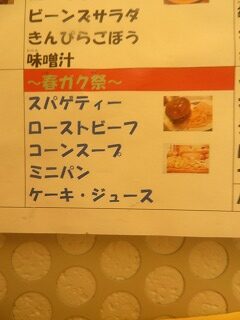 ビーンズサラダ
きんぴらごぼう
味噌汁
～春ガク祭～
スパゲティー
ローストビーフ
コーンスープ
ミニパン
ケーキ・ジュース